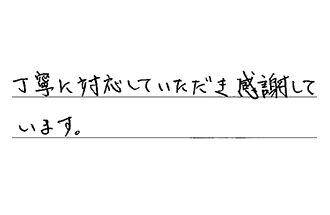 丁寧に対応していただき感謝して
います。